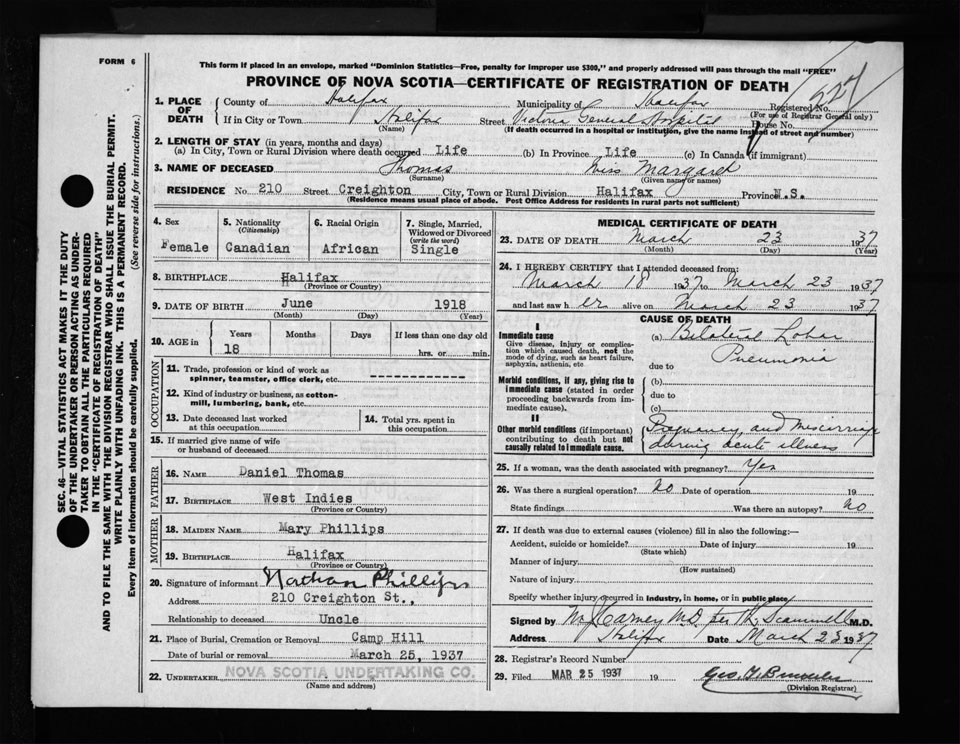 FORM 6
This form if placed in an envelope, marked "Dominion Statistics—Free, penalty for improper use $300," and properly addressed will pass through the mail "FREE"
PROVINCE OF NOVA SCOTIA—CERTIFICATE OF REGISTRATION OF DEATH
1. PLACE OF DEATH
County of Halifax Municipality of Halifax Registered No. 527
(For use of Registrar General only)
If in City or Town Halifax Street Victoria General Hospital House No.
(Name) (If death occurred in a hospital or institution, give the name instead of street and number)
2. LENGTH OF STAY (in years, months and days)
(a) In City, Town or Rural Division where death occurred Life (b) In Province Life (c) In Canada (if immigrant)
3. NAME OF DECEASED Thomas Miss Margaret
(Surname) (Given name or names)
RESIDENCE No. 210 Street Creighton City, Town or Rural Division Halifax Province N.S.
(Residence means usual place of abode. Post Office Address for residents in rural parts not sufficient)
4. Sex 5. Nationality (Citizenship) 6. Racial Origin 7. Single, Married, Widowed or Divorced (write the word)
Female Canadian African Single
8. BIRTHPLACE Halifax
(Province or Country)
9. DATE OF BIRTH June 1918
(Month) (Day) (Year)
10. AGE in Years Months Days If less than one day old
18 hrs. or min.
OCCUPATION
11. Trade, profession or kind of work as spinner, teamster, office clerk, etc.
12. Kind of industry or business, as cotton-mill, lumbering, bank, etc.
13. Date deceased last worked at this occupation
14. Total yrs. spent in this occupation
15. If married give name of wife or husband of deceased
FATHER
16. NAME Daniel Thomas
17. BIRTHPLACE West Indies
(Province or Country)
MOTHER
18. MAIDEN NAME Mary Phillips
19. BIRTHPLACE Halifax
(Province or Country)
20. Signature of informant Nathan Phillips
Address 210 Creighton St.,
Relationship to deceased Uncle
21. Place of Burial, Cremation or Removal Camp Hill
Date of burial or removal March 25, 1937
22. UNDERTAKER NOVA SCOTIA UNDERTAKING CO.
(Name and address)
MEDICAL CERTIFICATE OF DEATH
23. DATE OF DEATH March 23 1937
(Month) (Day) (Year)
24. I HEREBY CERTIFY that I attended deceased from:
March 18 1937 to March 23 1937
and last saw her alive on March 23 1937
CAUSE OF DEATH
I
Immediate cause (a) Bilateral Lobar
Give disease, injury or complication which caused death, not the mode of dying, such as heart failure, asphyxia, asthenia, etc.
Pneumonia
due to
Morbid conditions, if any, giving rise to immediate cause (stated in order proceeding backwards from immediate cause).
(b)
due to
(c)
II
Other morbid conditions (if important) contributing to death but not causally related to immediate cause.
Pregnancy and Miscarriage
during acute illness
25. If a woman, was the death associated with pregnancy? Yes
26. Was there a surgical operation? No Date of operation 19
State findings Was there an autopsy? No
27. If death was due to external causes (violence) fill in also the following:—
Accident, suicide or homicide? Date of injury 19
(State which)
Manner of injury
(How sustained)
Nature of injury
Specify whether injury occurred in industry, in home, or in public place
Signed by Carney M.D. per Scammell M.D.
Address Halifax Date March 23 1937
28. Registrar's Record Number
29. Filed MAR 25 1937 19
(Division Registrar)
SEC. 46—VITAL STATISTICS ACT MAKES IT THE DUTY
OF THE UNDERTAKER OR PERSON ACTING AS UNDER-
TAKER TO OBTAIN ALL THE PARTICULARS REQUIRED
IN THE "CERTIFICATE OF REGISTRATION OF DEATH"
AND TO FILE THE SAME WITH THE DIVISION REGISTRAR WHO SHALL ISSUE THE BURIAL PERMIT.
WRITE PLAINLY WITH UNFADING INK. THIS IS A PERMANENT RECORD.
Every item of information should be carefully supplied. (See reverse side for instructions.)